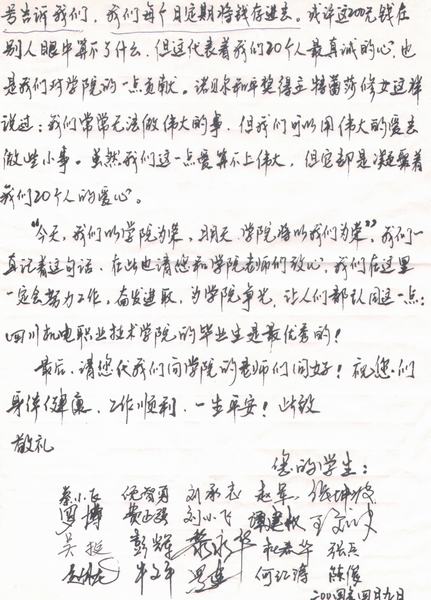 号告诉我们，我们每个月定期将钱存进去。或许这200元钱在
别人眼中算不了什么，但这代表着我们20个人最真诚的心，也
是我们对学院的一点贡献。诺贝尔和平奖得主特蕾莎修女这样
说过：我们常常无法做伟大的事，但我们可以用伟大的爱去
做些小事。虽然我们这一点爱算不上伟大，但它却是凝聚着
我们20个人的爱心。
"今天，我们以学院为荣，明天，学院将以我们为荣"，我们一
直记着这句话。在此也请您和学院老师们放心，我们在这里
一定会努力工作，奋发进取，为学院争光，让人们都认同这一点：
四川机电职业技术学院的毕业生是最优秀的！
最后，请您代我们向学院的老师们问好！祝您们
身体健康，工作顺利，一生平安！此致
敬礼
您的学生：
蔡小飞 倪智勇 刘承志 赵军
罗博 黄正强 刘小飞 谭建权
吴挺 彭辉 永华 祝春华 张兵
何江涛 陈俊
二00四年四月九日